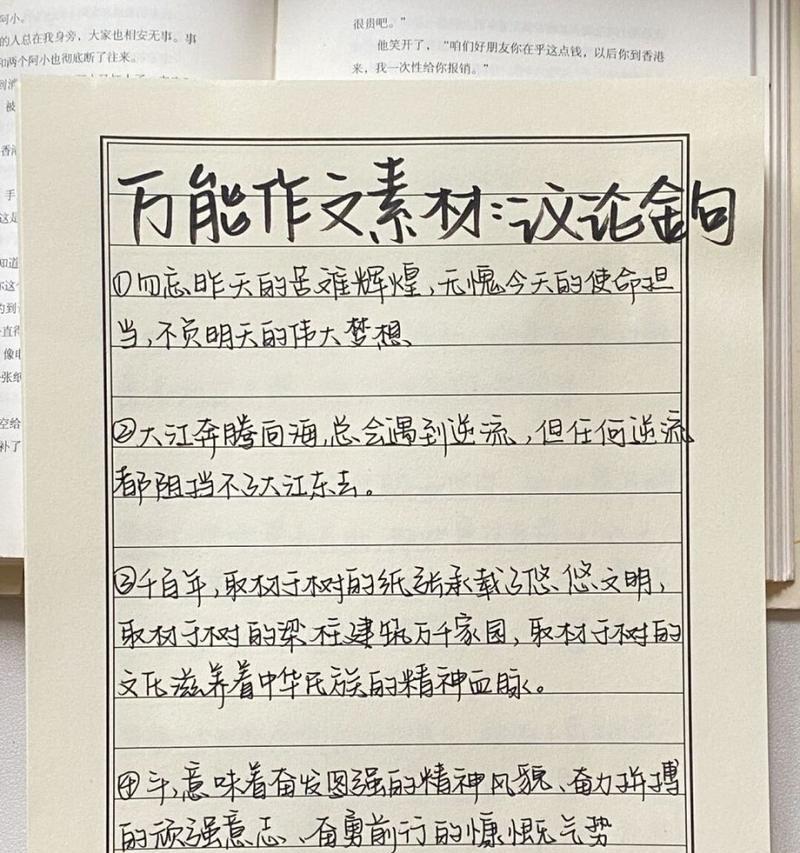 阿小。
的人总在我身旁，大家也相安无事。事
和两个阿小也彻底断了往来。
很贵吧。”
他笑开了，“咱们好朋友你在乎这点钱，以后你到香港
来，我一次性给你报销。”
万能作文素材：议论金句
①勿忘昨天的苦难辉煌，无愧今天的使命担
当，不负明天的伟大梦想
②大江奔腾向海，总会遇到逆流，但任何逆流
都阻挡不了大江东去。
③千百年，取材于树的纸张承载了悠悠文明，
取材于树的梁柱建筑万千家园，取材于树的
文化滋养着中华民族的精神血脉。
④斗，意味着奋发图强的精神风貌、奋力拼搏
的顽强意志、奋勇前行的慷慨气势